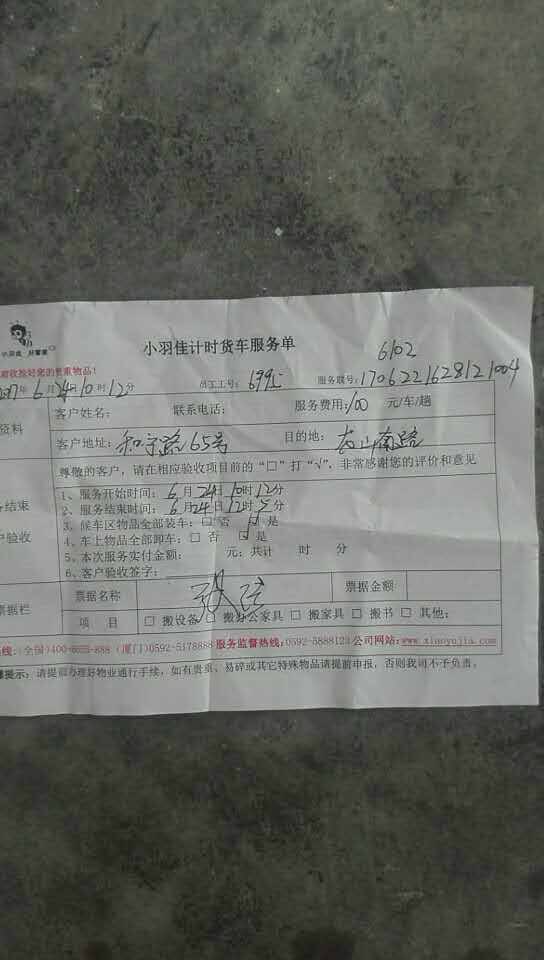 小羽佳计时货车服务单
6102
贵重物品！
2017年6月24日10时12分 员工工号： 服务联号：1706221628121004
资料 客户姓名： 联系电话： 服务费用：100 元/车/趟
客户地址：和宁路65号 目的地：南路
尊敬的客户，请在相应验收项目前的“□”打“√”，非常感谢您的评价和意见
结束 1、服务开始时间：6月24日10时12分
2、服务结束时间：6月24日12时 分
验收 3、候车区物品全部装车：□ 否 □ 是
4、车上物品全部卸车：□ 否 □ 是
5、本次服务实付金额： 元；共计 时 分
6、客户验收签字：
票据栏 票据名称 票据金额
项 目 □ 搬设备 □ 搬办公家具 □ 搬家具 □ 搬书 □ 其他：
热线：（全国）400-6655-888（厦门）0592-5178888 服务监督热线：0592-5888123 公司网站：www.xiaoyujia.com
提示：请提前办理好物业通行手续，如有贵重、易碎或其它特殊物品请提前申报，否则我司不予负责。